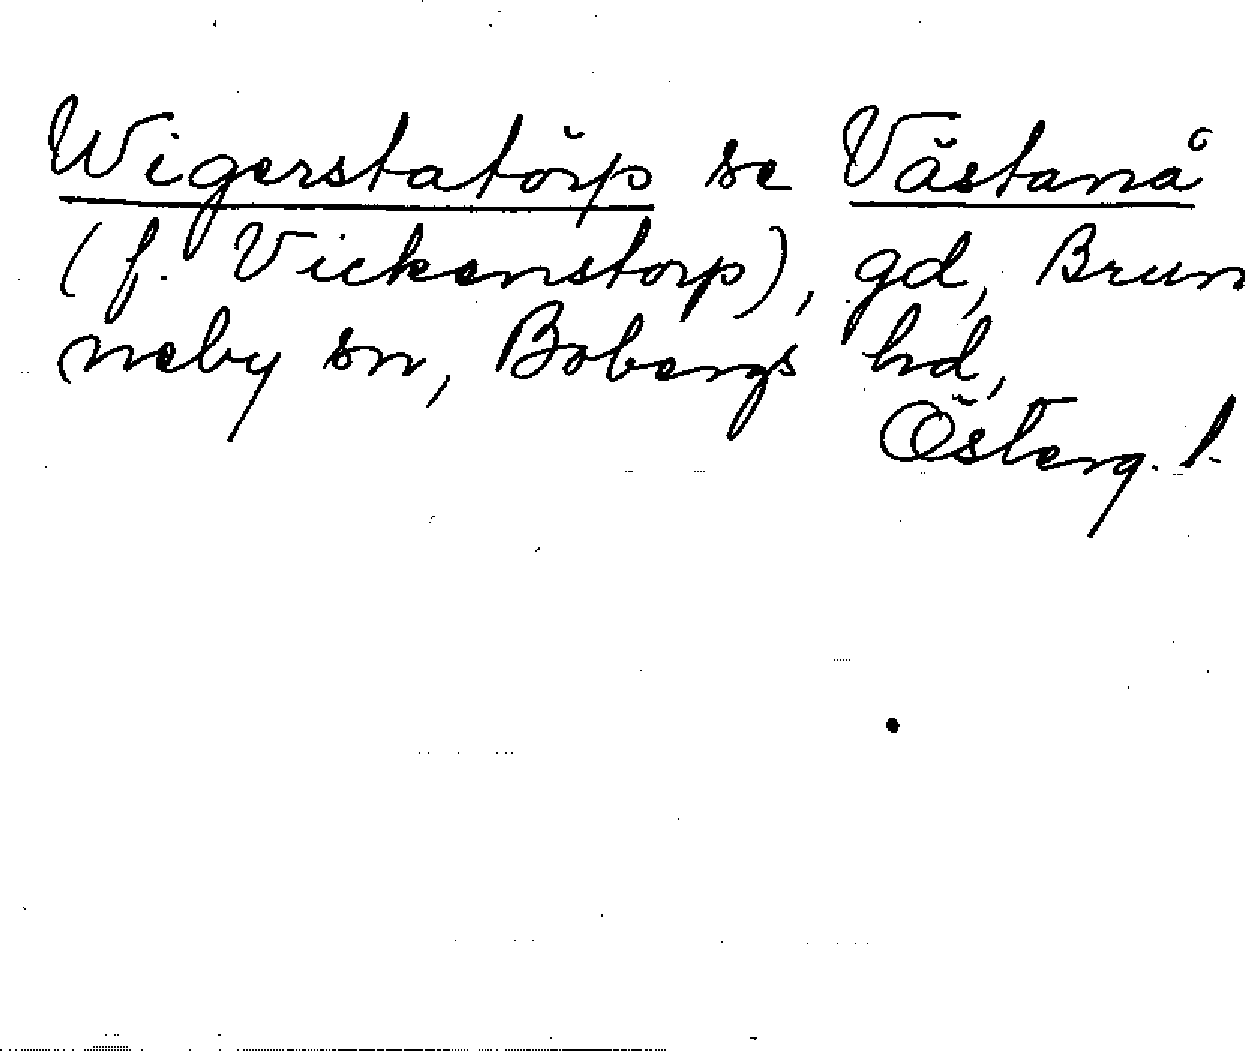 Wigerstatörp se Västanå
(f. Vickenstorp), gd, Brun
neby sn, Bobergs hd,
Österg. l.